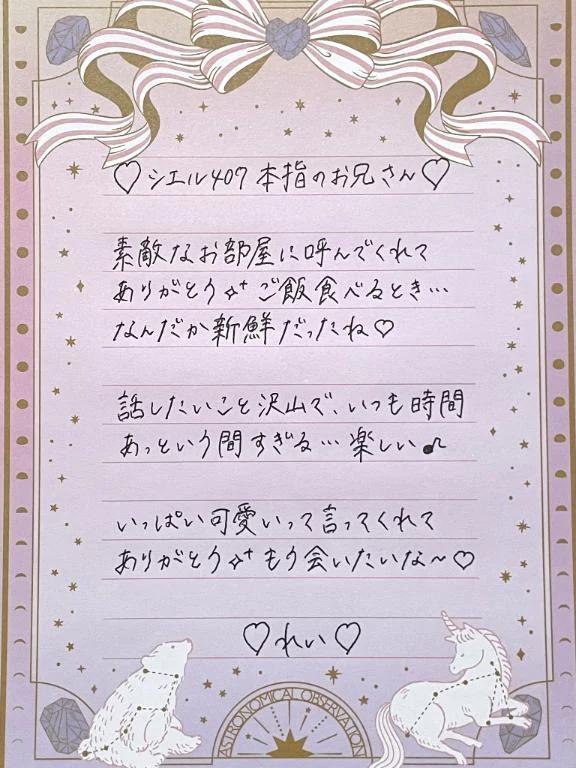 ♡シエル407 本指のお兄さん♡
素敵なお部屋に呼んでくれて
ありがとう✧⁺ ご飯食べるとき…
なんだか新鮮だったね♡
話したいこと沢山で、いつも時間
あっという間すぎる… 楽しい♪
いっぱい可愛いって言ってくれて
ありがとう✧⁺ もう会いたいな〜♡
♡れい♡
ASTRONOMICAL OBSERVATION